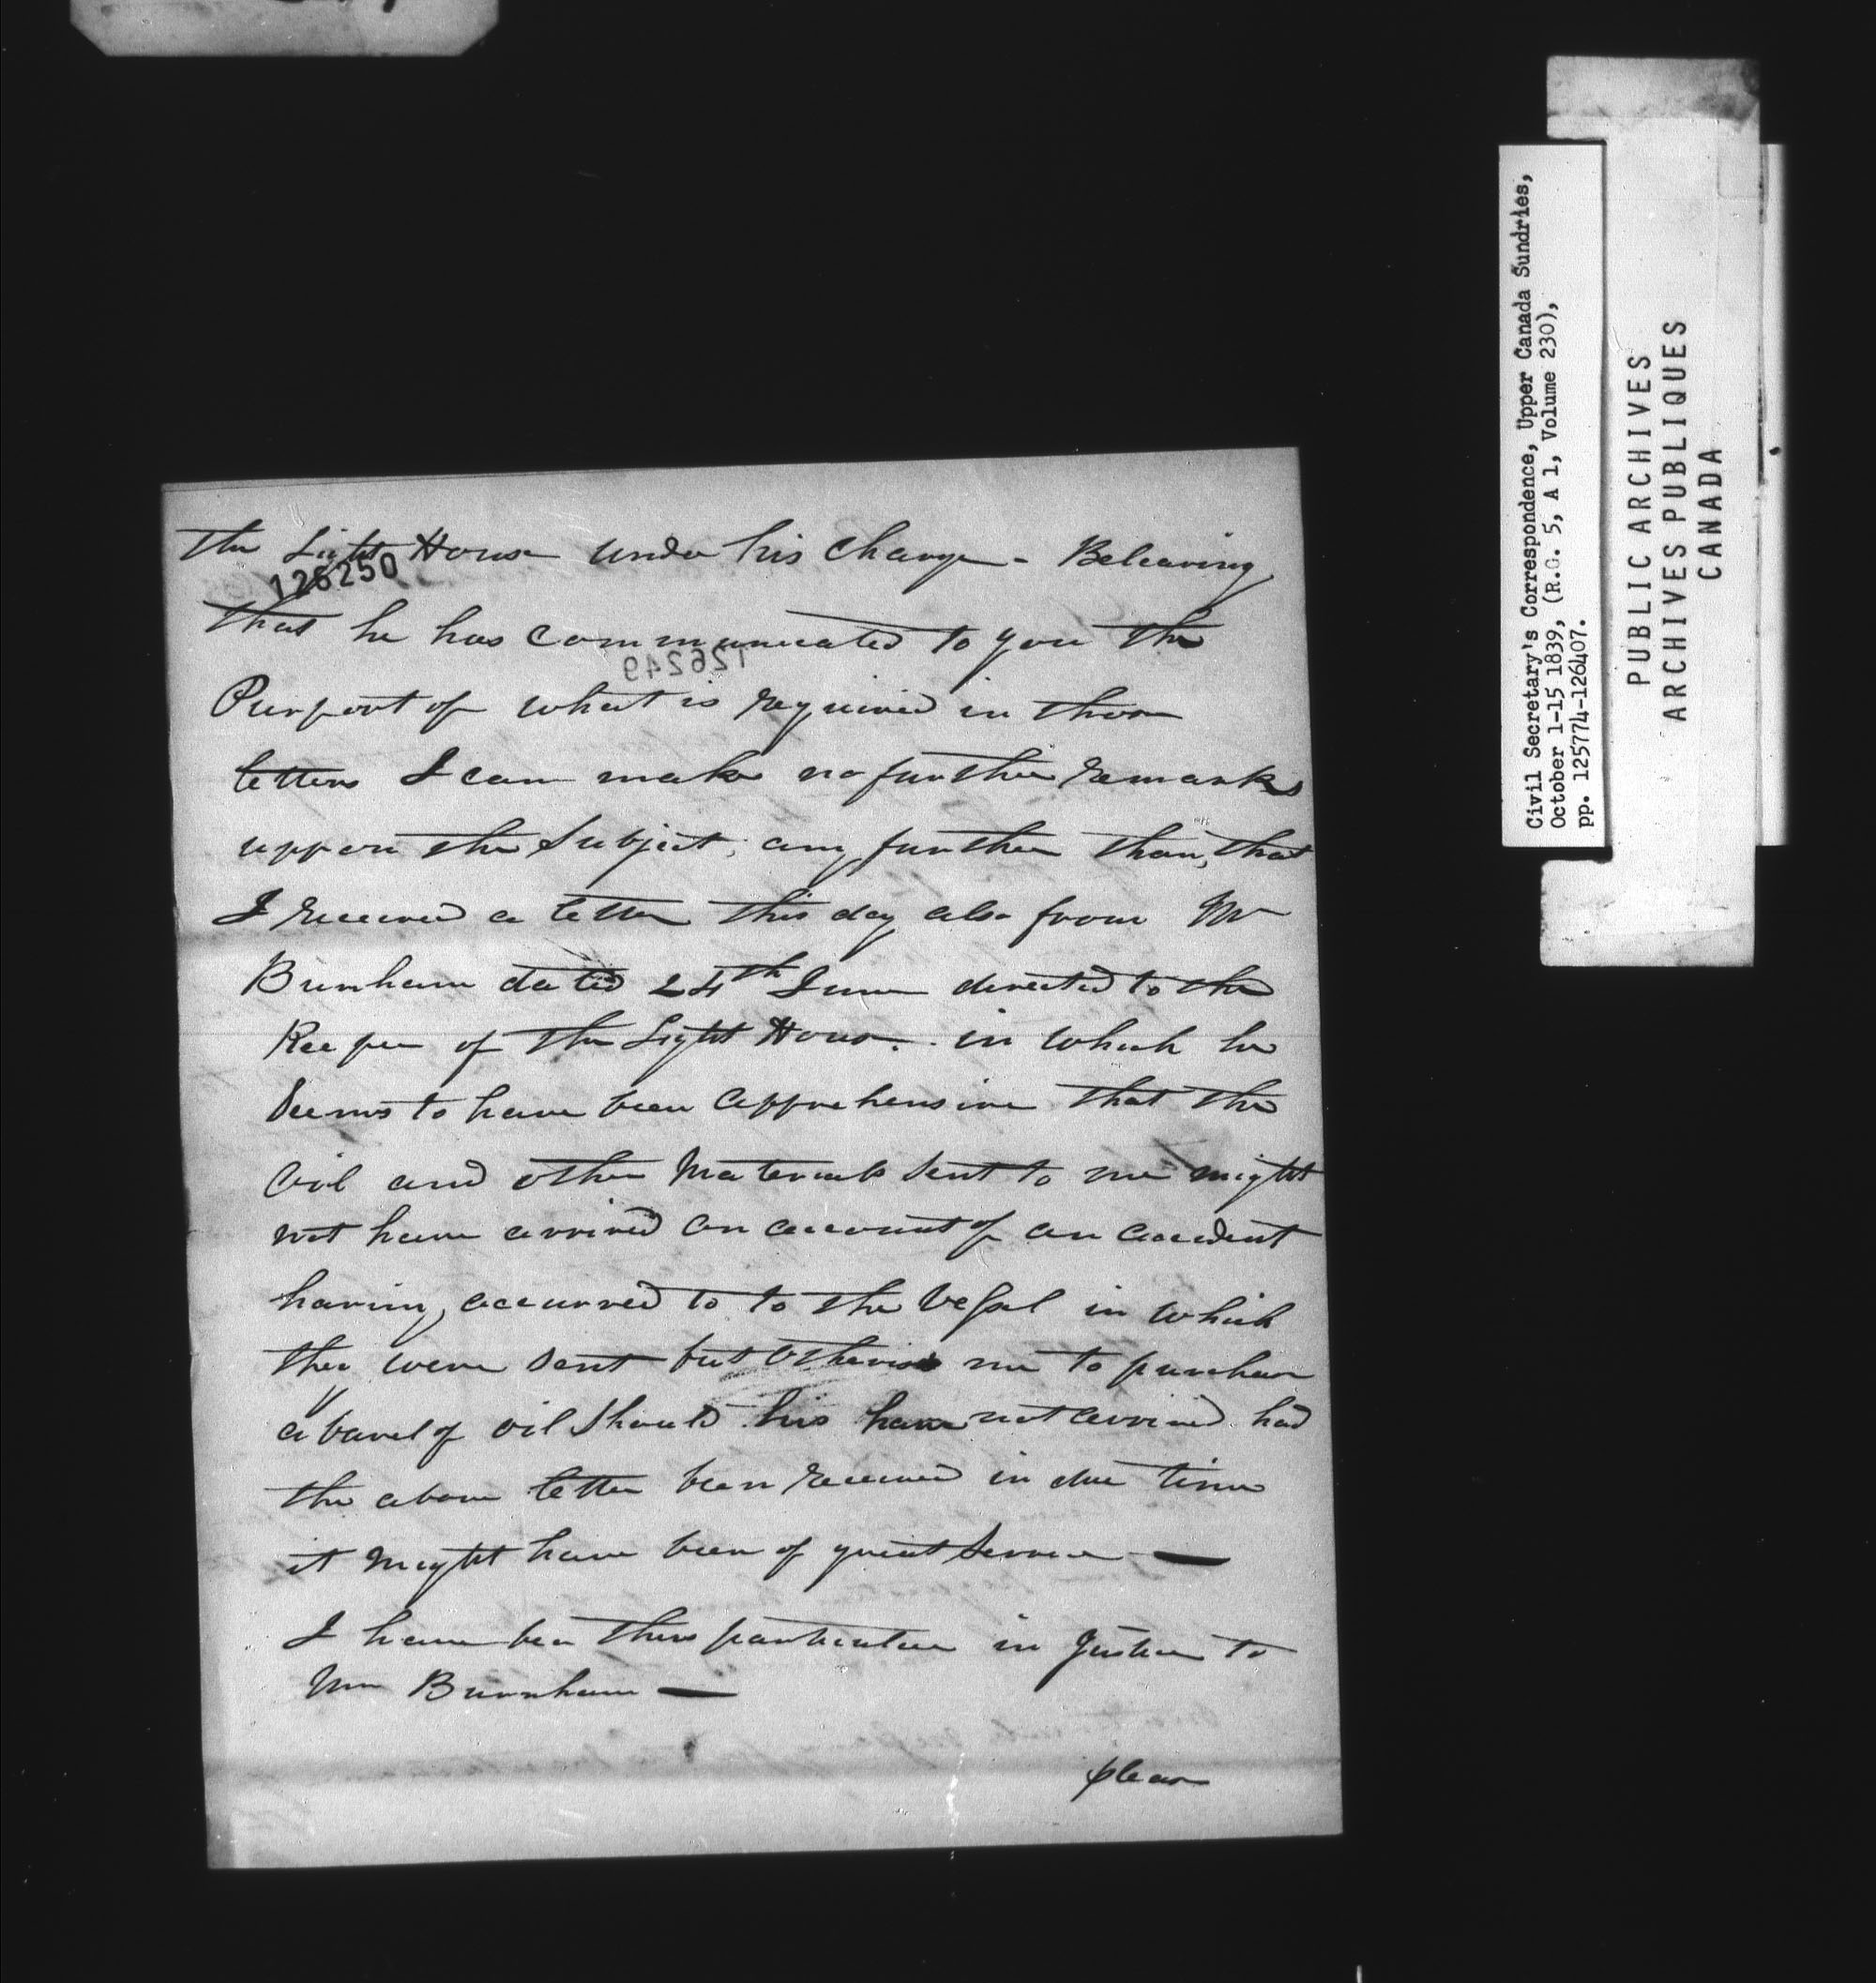 the Light House under his Charge - Beleaving
126250
that he has communicated to you the
126249
Purport of what is required in those
letters I can make no further remarks
uppon the Subject, any further than, that
I received a letter this day also from Mr
Burnham dated 24th June directed to the
Keeper of the Light House. in which he
Seems to have been apprehensive that the
Oil and other Materials Sent to me might
not have arrived on account of an accident
having occurred to to the Vessel in which
they were Sent but Otherwise me to purchase
a barel of oil Should his have not arrived had
the above letter been received in due time
it Might have been of great Service —
I have been thus particular in Justice to
Mr Burnham —
please
Civil Secretary's Correspondence, Upper Canada Sundries,
October 1-15 1839, (R.G. 5, A 1, Volume 230),
pp. 125774-126407.
PUBLIC ARCHIVES
ARCHIVES PUBLIQUES
CANADA